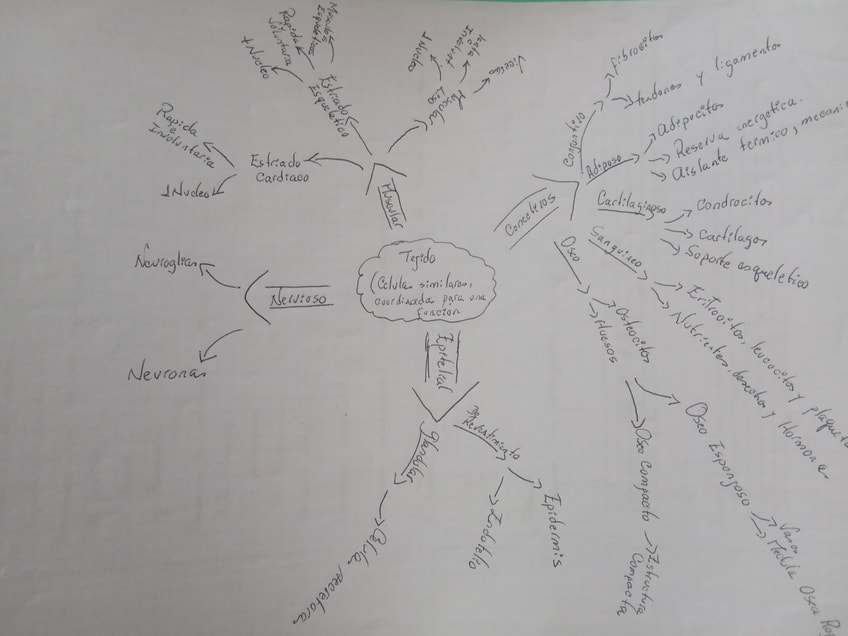 Tejido
(Celulas similares,
coordinadas para una
funcion
Muscular
Estriado
Esqueletico
Musculos
Esqueleticos
Rapida
Voluntaria
+ Nucleo
Muscular
Liso
1 Nucleo
Lenta
Involunt
Estriado
Cardiaco
Rapida
e
Involuntaria
1 Nucleo
Nervioso
Neuroglias
Neuronas
Epitelial
De
Revestimiento
Epidermis
Endotelio
Glandular
Celula secretora
Conectivos
Conjuntivo
fibrocitos
tendones y ligamentos
Adiposo
Adipocitos
Reserva energetica.
Aislante termico, mecani
Cartilaginoso
Condrocitos
Cartilagos
Soporte esqueletico
Sanguineo
Eritrocitos, leucocitos y plaqueta
Nutrientes, desechos y Hormonas
Oseo
Osteocitos
Huesos
Oseo Esponjoso
Vasos
Medula Osea Ro
Oseo Compacto
Estructura
Compacta